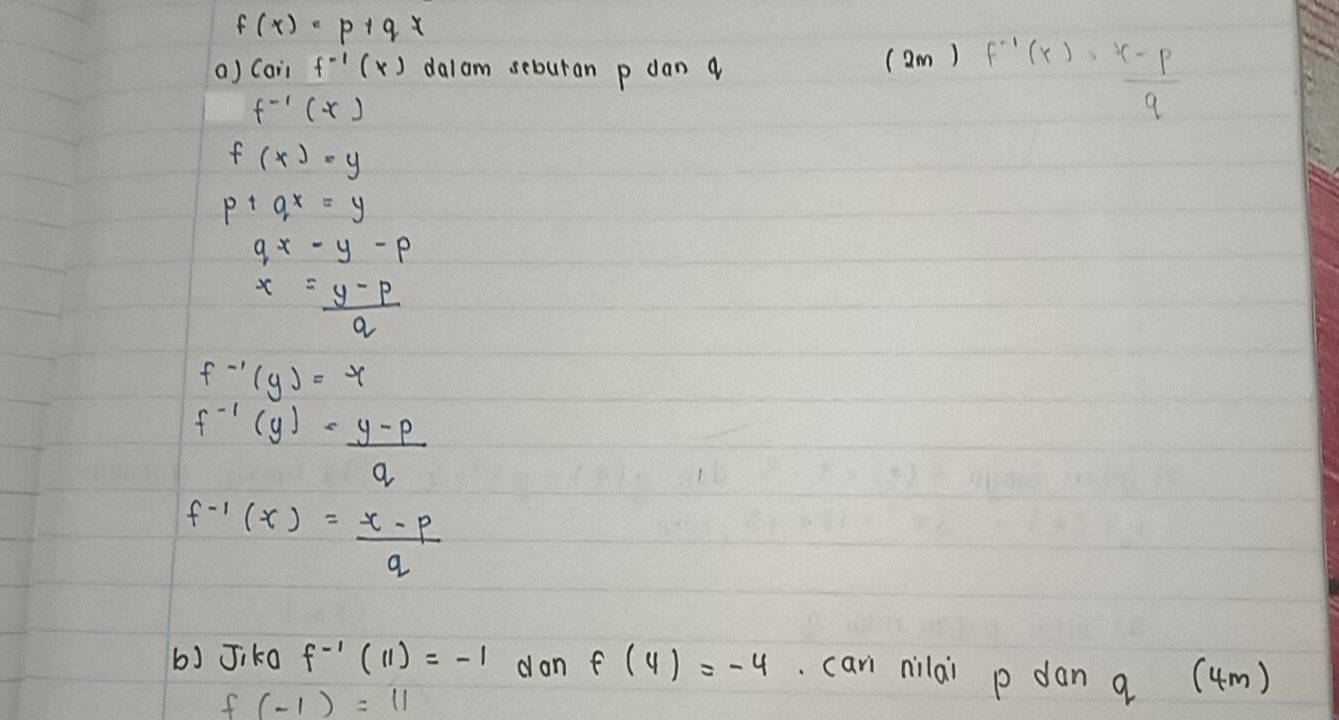 f(x) = p + qx
a) Cari f⁻¹(x) dalam sebutan p dan q (2m) f⁻¹(x) = x - p / q
f⁻¹(x)
f(x) = y
p + qx = y
qx = y - p
x = y - p / q
f⁻¹(y) = x
f⁻¹(y) = y - p / q
f⁻¹(x) = x - p / q
b) Jika f⁻¹(11) = -1 dan f(4) = -4. cari nilai p dan q (4m)
f(-1) = 11